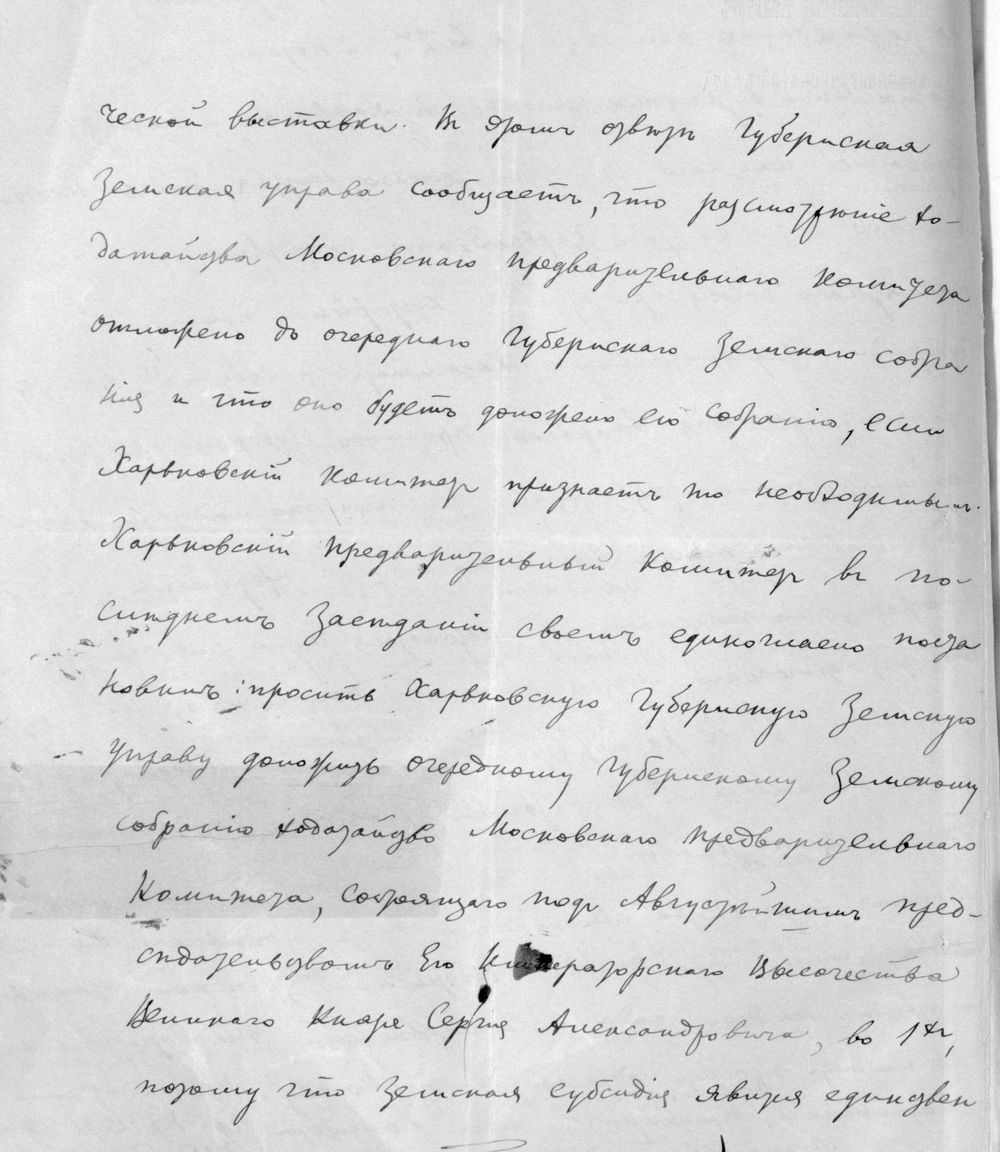 ческой выставки. Въ этомъ связи Губернская
Земская управа сообщаетъ, что разсмотрѣніе хо-
датайства Московскаго предварительнаго Комитета
отложено до очереднаго Губернскаго Земскаго собра
нія и что оно будетъ доложено его собранію, если
Харьковскій Комитетъ признаетъ то необходимымъ.
Харьковскій предварительный Комитетъ въ по-
слѣднемъ Засѣданіи своемъ единогласно поста
новилъ: просить Харьковскую Губернскую Земскую
Управу доложить очередному Губернскому Земскому
собранію ходатайство Московскаго предварительнаго
Комитета, состоящаго подъ Августѣйшимъ пред-
сѣдательствомъ Его Императорскаго Высочества
Великаго Князя Сергія Александровича, во 1хъ,
потому что Земская субсидія явится единствен